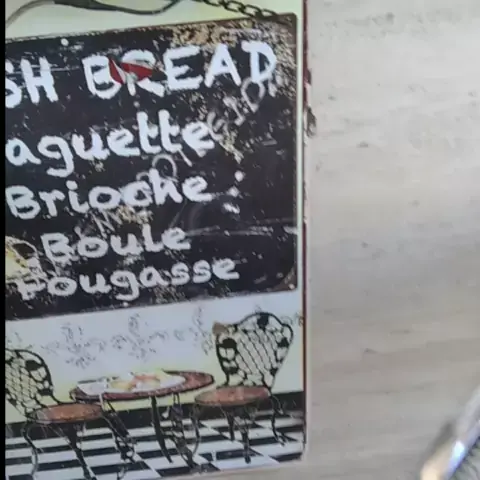 SH BREAD
aguette
Brioche
Boule
Fougasse